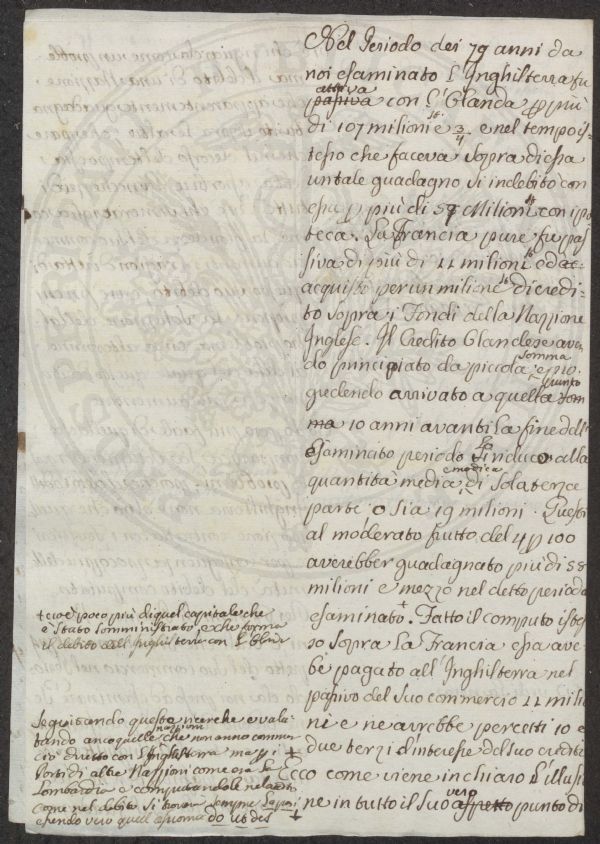 Nel Periodo dei 79 anni da
noi esaminato L'Inghilterra fu
attiva
passiva con L'Olanda p più
di 107 milioni st. e 3/4 e nel tempo is=
tesso che faceva sopra di essa
un tale guadagno si indebito con
essa p più di milioni con ipo
teca. La Francia pure fu pas
siva di più di 11 milioni ed ac=
acquistò per un milione di credi=
to sopra i Fondi della Nazzione
Inglese. Il Credito Olandese aven
do principiato da piccola somma e pro
gredendo arrivato a quella punto som
ma 10 anni avanti la fine dell'
esaminato periodo induco alla
modica
quantita media di sola terza
parte o sia 19 milioni. Questi
al moderato frutto del 4 p 100
averebber guadagnato più di 58
milioni e mezzo nel detto periodo
esaminato +. Fatto il computo istes
so sopra La Francia essa ave
be pagato all'Inghilterra nel
passivo del suo commercio 11 mili
ni e ne avrebbe percetti 10 e
due terzi d'interesse del suo credito
+ Ecco come viene in chiaro L'illusi
ne in tutto il suo vero aspetto punto di
+ cioè poco più di quel capitale che
è stato somministrato, e che forma
il debito dell'Inghilterra con L'Olan
Seguitando queste ricerche e valu
tando anco quelle nazioni che non anno commer
cio diretto con L'Inghilterra ma p i
Porti di altre Nazzioni come è la
Lombardia e computandole nel
come nel debito si trova sempre
essendo vero quel assioma do ut des +